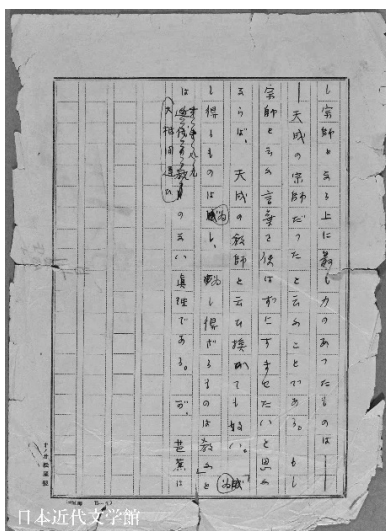 し宗師となる上に最も力のあつたものは――
――天成の宗師だつたと云ふことである。もし
宗師と云ふ言葉を使はずにすませたいと思ふ
ならば、天成の教師と云ひ換へても好い。
し得るものは し、 し得ざるものは教ふ」と
は のない真理である。が、芭蕉は
大抵間違ひ
日本近代文学館